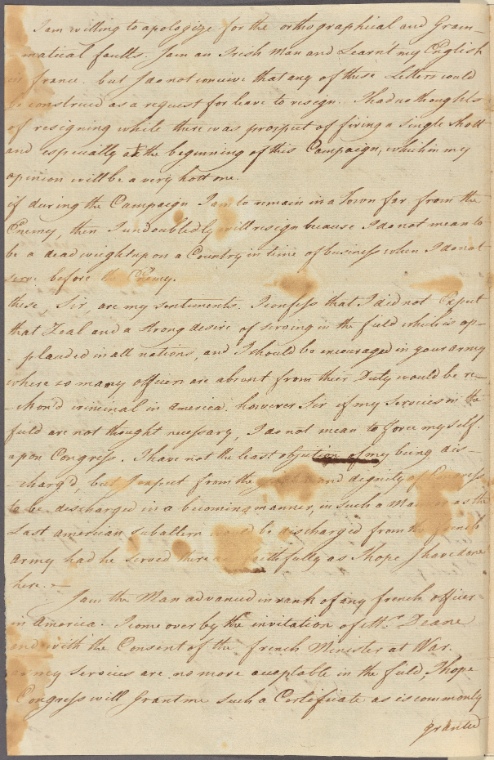 I am willing to apologize for the orthographical and Gram-
matical faults I am an Irish Man and Learnt my English
in france. but I do not conceive that any of these Letters could
construed as a request for leave to resign. I had no thoughts
of resigning while there was prospect of firing a single shott
and especially at the beginning of this Campaign, which in my
opinion will be a very hott one.
if during the Campaign I am to remain in a Town far from the
Enemy, then I undoubtedly will resign because I do not mean to
be a dead weight upon a Country in time of business when I do not
serve before the Enemy.
these, Sir, are my sentiments. I confess that I did not Expect
that Zeal and a strong desire of serving in the field which is ap-
plauded in all nations, and I should be encouraged in your army
where so many officers are absent from their Duty would be re-
-chon'd criminal in america. however Sir if my Services in the
field are not thought necessary, I do not mean to force my self
upon Congress. I have not the least objection of my being dis-
-charg'd, but I expect from the and dignity of Congress
to be discharged in a becoming manner, in such a Manner as the
Last american subaltern would be discharged from the french
Army had he served there faithfully as I hope I have done
here.-
I am the Man advanced in rank of any french officer
in America. I come over by the invitation of Mr. Deane
and with the Consent of the french Minister at War.
my services are no more acceptable in the field I hope
Congress will Grant me such a Certificate as is commonly
granted